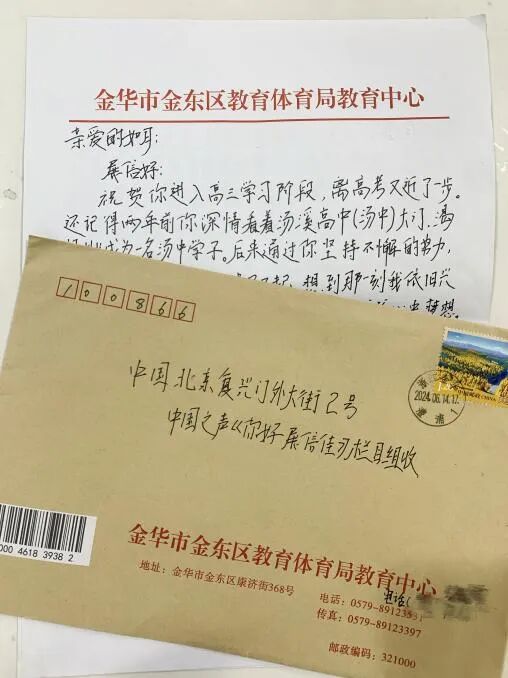 金华市金东区教育体育局教育中心
亲爱的如耳：
展信好：
祝贺你进入高三学习阶段，离高考又近了一步。
还记得两年前你深情看着汤溪高中(汤中)大门，渴
成为一名汤中学子。后来通过你坚持不懈的努力，
想到那一刻我依旧兴
梦想
100866
中国北京复兴门外大街2号
中国之声《你好 展信佳》栏目组收
2024.06.14.17
1
中国邮政 CHINA
000 4618 3938 2
金华市金东区教育体育局教育中心
地址：金华市金东区康济街368号
电话：0579-8912
电话(
传真：0579-89123397
邮政编码：321000